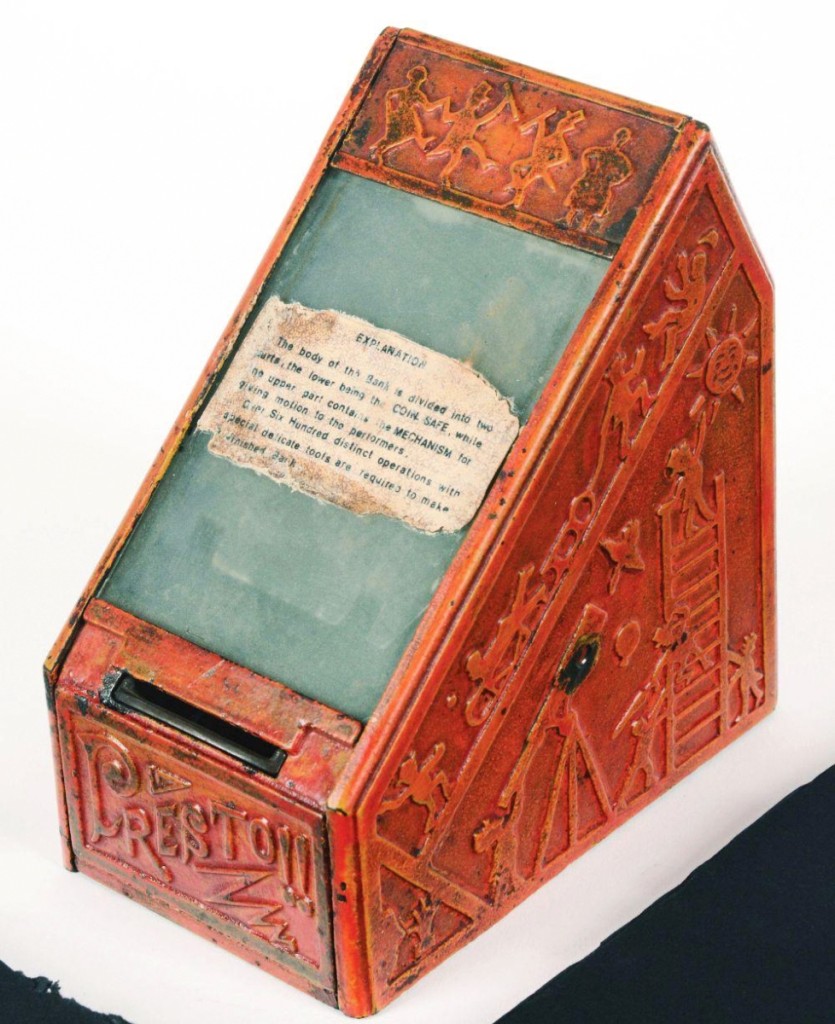 EXPLANATION
The body of the Bank is divided into two
parts, the lower being the COIN SAFE, while
he upper part contains the MECHANISM for
giving motion to the performers.
Over Six Hundred distinct operations with
special delicate tools are required to make
finished Bank
PRESTO!!